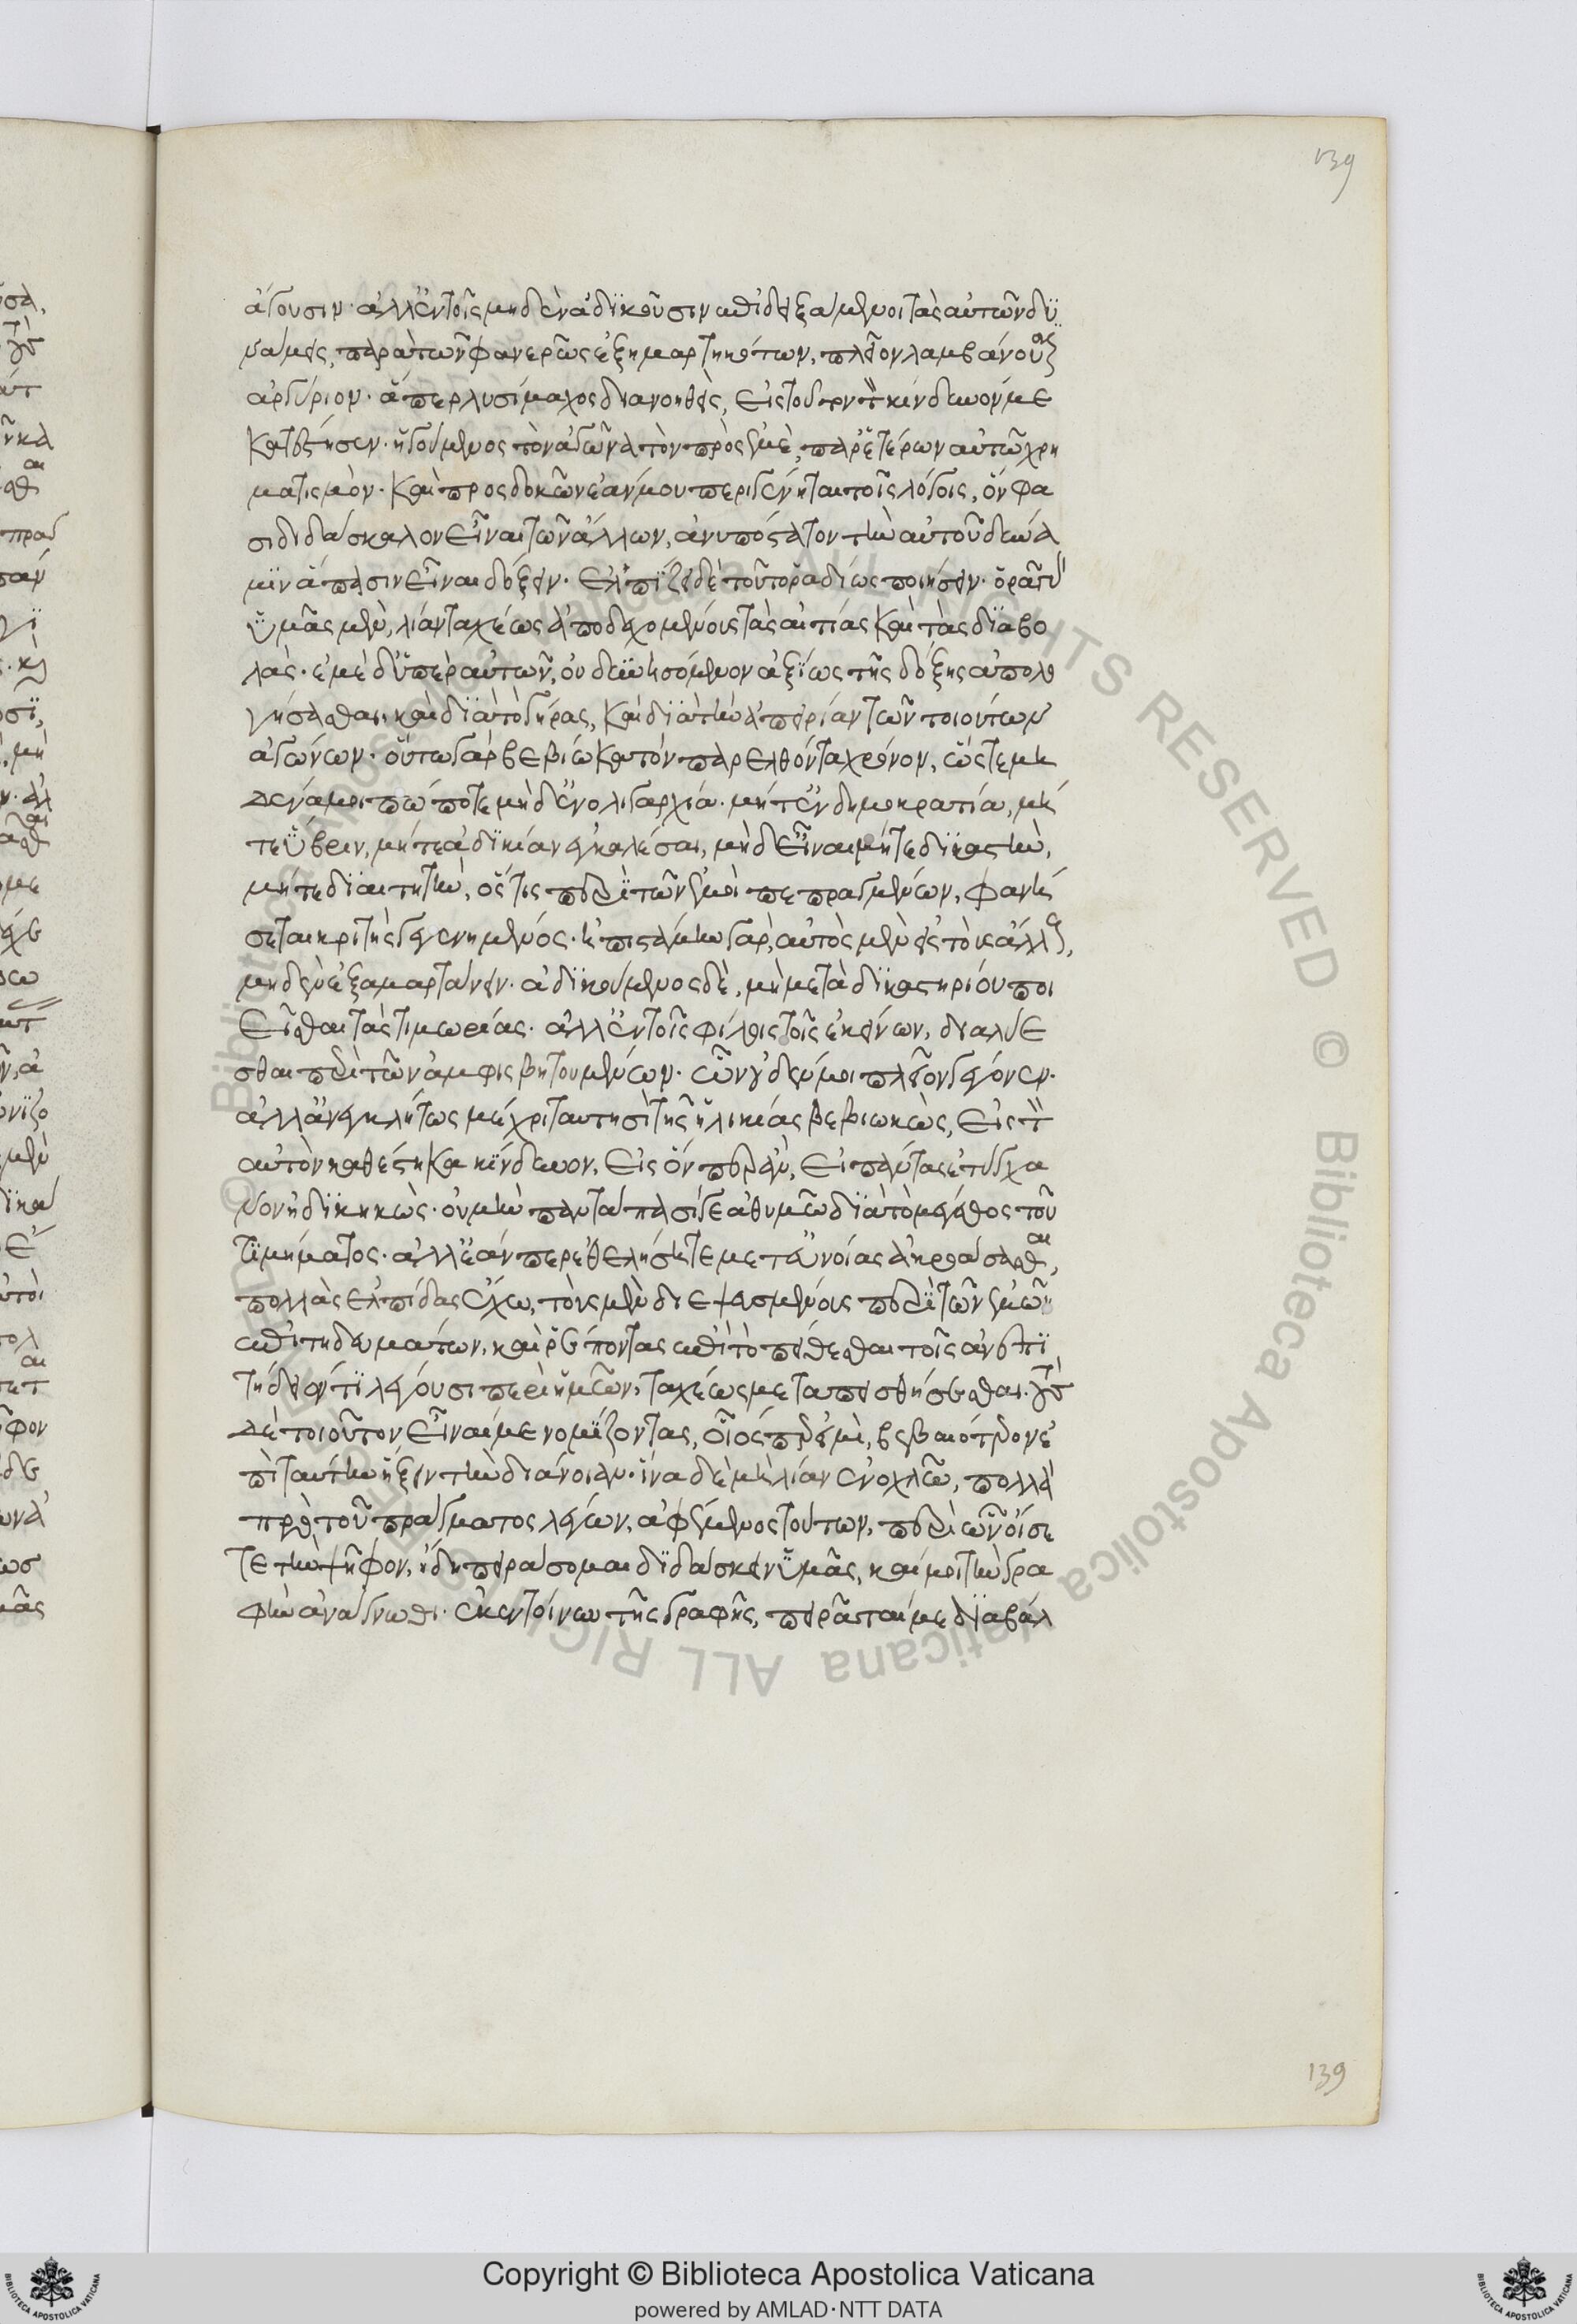 139
ἄγουσιν· ἀλλ' ἐν τοῖς μηδὲν ἀδϊκοῦσιν ἐπιδειξάμενοι τὰς αὑτῶν δυ
νάμεις, παρὰ τῶν φανερῶς ἐξημαρτηκότων, πλεῖον λαμβάνουσιν
ἀργύριον· ἅπερ λυσίμαχος διανοηθεὶς, εἰς τουτονὶ τὸν κίνδυνόν με
κατέστησεν· ἡγούμενος τὸν ἀγῶνα τὸν πρὸς ἐμὲ, παρ' ἑτέρων αὐτῶ χρη
ματισμὸν· καὶ προσδοκῶν ἐὰν ἐμοῦ περιγένηται τοῖς λόγοις, ὅν φα
σι διδάσκαλον εἶναι τῶν ἄλλων, ἀνυπόστατον τὴν αὑτοῦ δύνα
μϊν ἅπασιν εἶναι δόξειν· ἐλπϊζει δὲ τοῦτο ῥαδίως ποιήσειν· ὁρᾶ γὰρ
ὑμᾶς μὲν, λίαν ταχέως ἀποδεχομένους τὰς αἰτίας καὶ τὰς διαβο
λάς· ἐμὲ δ' ὑπὲρ αὐτῶν, οὐ δυνησόμενον ἀξίως τῆς δόξης ἀπολο
γήσασθαι, καὶ διὰ τὸ γῆρας, καὶ διὰ τὴν ἀπειρίαν τῶν τοιούτων
ἀγώνων· οὕτω γὰρ βεβίωκα τὸν παρελθόντα χρόνον, ὥστε μη
δένα μοι πώποτε μὴδ' ἐν ὀλιγαρχία· μήτ' ἐν δημοκρατία, μή
τε ὕβριν, μήτε ἀδικίαν ἐγκαλέσαι, μὴδ' εἶναι μήτε δικαστὴν,
μήτε διαιτητὴν, ὅστις περὶ τῶν ἐμοὶ πεπραγμένων, φανή
σεται κριτὴς γεγενημένος· ἠπιστάμην γὰρ, αὐτὸς μὲν εἰς τοὺς ἄλλους,
μηδὲν ἐξαμαρτάνειν· ἀδικούμενος δὲ, μὴ μετὰ δικαστηρίου ποι
εῖσθαι τὰς τιμωρίας· ἀλλ' ἐν τοῖς φίλοις τοῖς ἐκείνων, διαλύε
σθαι περὶ τῶν ἀμφισβητουμένων· ὧν οὐδέν μοι πλέον γέγονεν·
ἀλλ' ἀνεγκλήτως μέχρι ταυτησὶ τῆς ἡλικίας βεβιωκὼς, εἰς τὸν
αὐτὸν καθέστηκα κίνδυνον, εἰς ὅν περ ἂν, εἰ πάντας ἐτύγχα
νον ἠδικηκώς· οὐ μὴν παντάπασί γε ἀθυμῶ διὰ τὸ μέγεθος τοῦ
τιμήματος· ἀλλ' ἐάν περ ἐθελήσητε μετ' εὐνοίας ἀκροάσασθαι,
πολλὰς ἐλπίδας ἔχω, τοὺς μὲν διεψευσμένους περὶ τῶν ἐμῶν
ἐπιτηδευμάτων, καὶ ῥέποντας ἐπὶ τὸ πείθεσθαι τοῖς ἀνεπι
τήδειόν τι λέγουσι περὶ ἡμῶν, ταχέως μεταπεισθήσεσθαι· τοὺς
δὲ τοιοῦτον εἶναί με νομίζοντας, οἷός πέρ εἰμὶ, βεβαιότερον ἐ
πὶ ταύτην ἥξειν τὴν διάνοιαν· ἵνα δὲ μὴ λίαν ἐνοχλῶ, πολλὰ
πρὸ τοῦ πράγματος λέγων, ἀφέμενος τούτων, περὶ ὧν οἴσε
τε τὴν ψῆφον, ἤδη πειράσομαι διδάσκειν ὑμᾶς, καί μοι τὴν γρα
φὴν ἀνάγνωθι· ἐκ μὲν τοίνυν τῆς γραφῆς, πειρᾶταί με διαβάλ
139
© Biblioteca Apostolica Vaticana ALL RIGHTS RESERVED
Copyright © Biblioteca Apostolica Vaticana
powered by AMLAD·NTT DATA